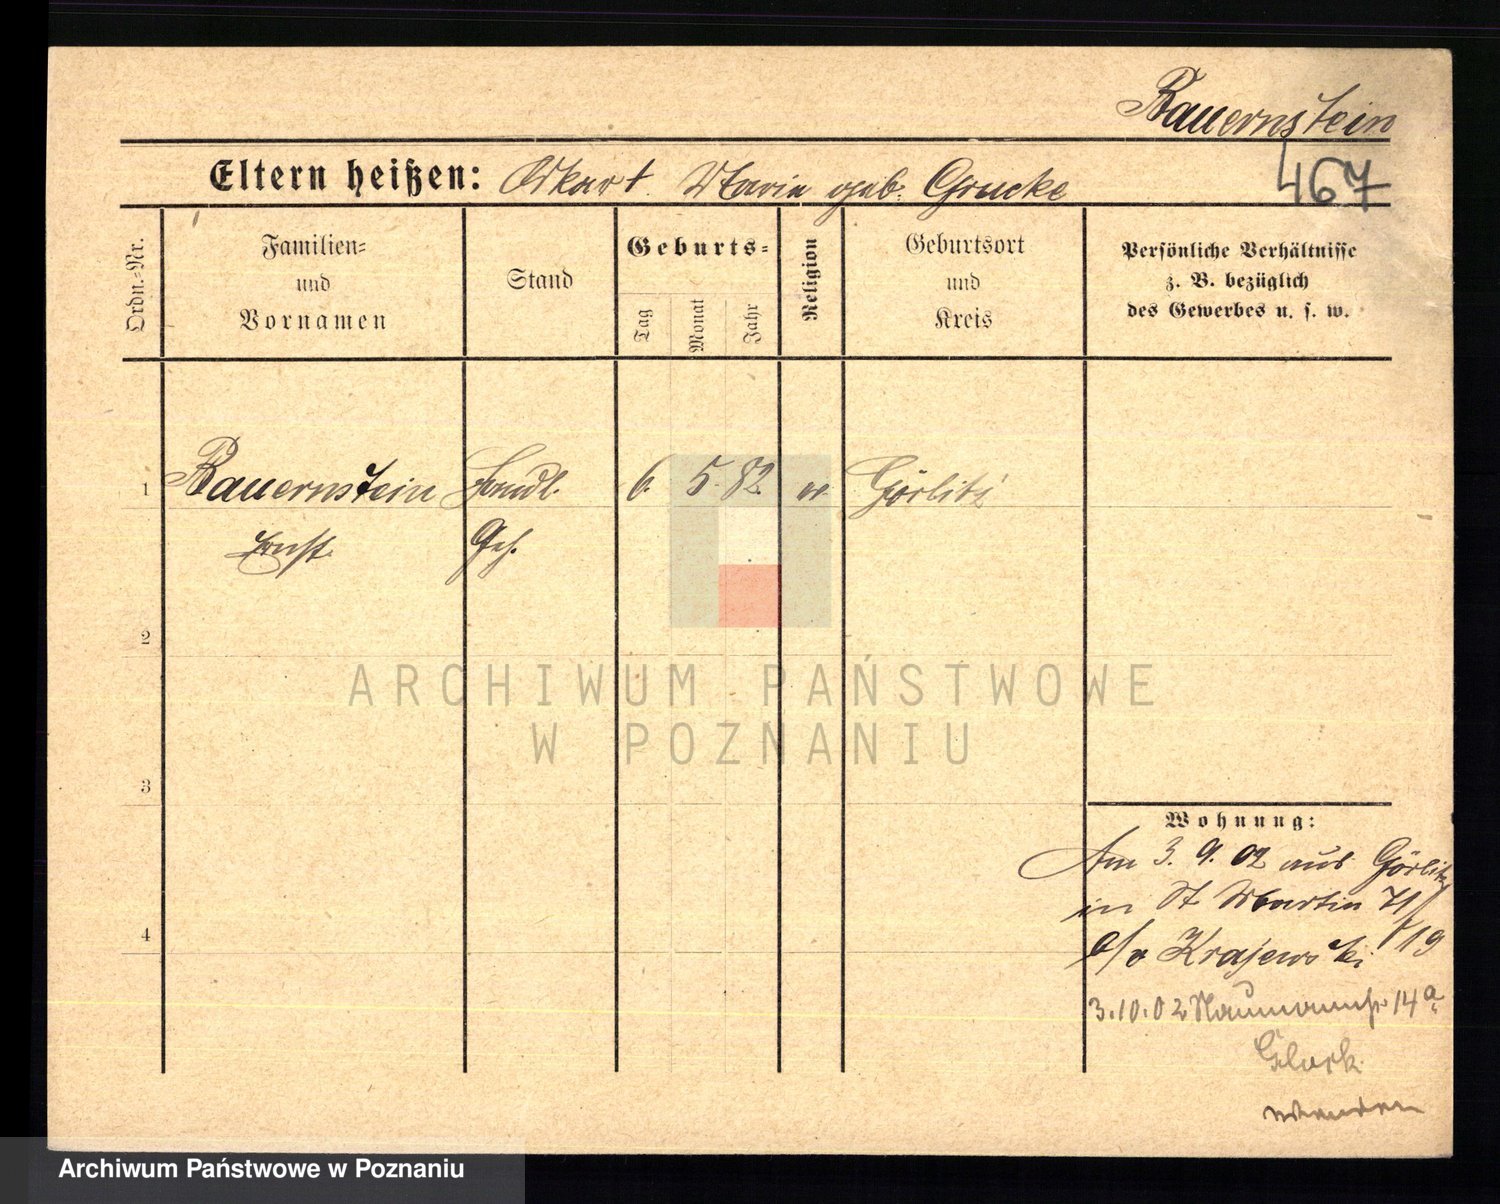 Bauernstein
Eltern heißen: Oskar t. Maria geb. Grucke
467
Ordn.=Nr.
Familien=
und
Vornamen
Stand
Geburts=
Tag
Monat
Jahr
Religion
Geburtsort
und
Kreis
Persönliche Verhältnisse
z. B. bezüglich
des Gewerbes u. s. w.
1 Bauernstein Handl. 6. 5. 82 Görlitz
Ernst Geh.
2
ARCHIWUM PAŃSTWOWE
W POZNANIU
3
Wohnung:
Am 3. 9. 02 aus Görlitz
in St Martin 71/
4
b/v Krajewski 19
3.10.02 Naumannstr 14a
wenden
Archiwum Państwowe w Poznaniu